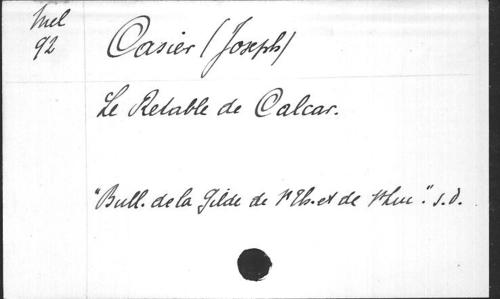 Mel
92
Casier (Joseph)
Le Retable de Calcar.
"Bull. de la Gilde de St Th. et de St Luc". s.d.